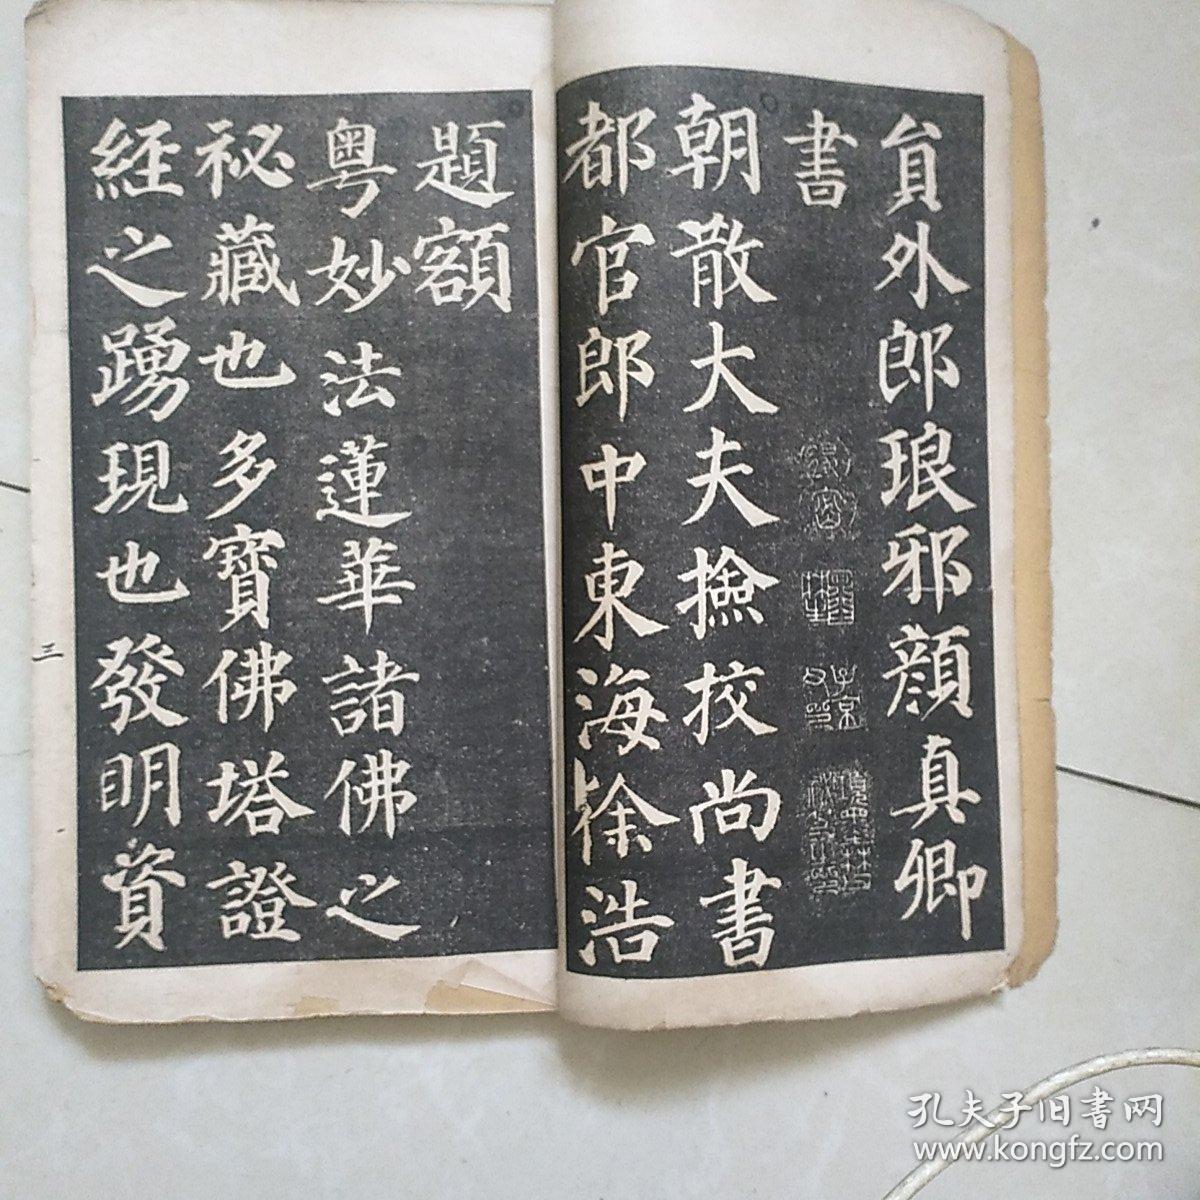 貟外郎琅邪顔真卿
書
朝散大夫撿挍尚書
都官郎中東海徐浩
題額
粵妙法蓮華諸佛之
祕藏也多寶佛塔證
經之踴現也發明資
三
孔夫子旧書网
www.kongfz.com